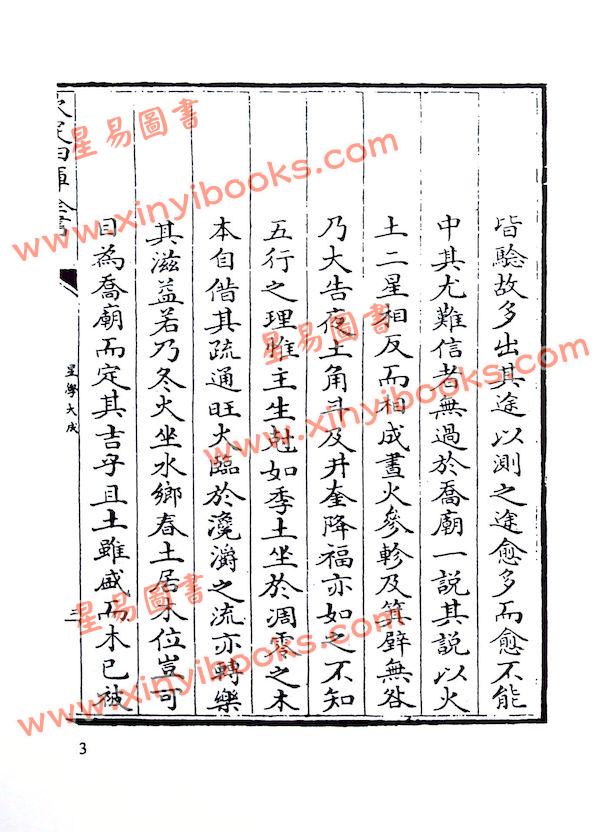 皆驗故多出其途以測之途愈多而愈不能
中其尤難信者無過於喬廟一說其說以火
土二星相反而相成晝火參軫及箕壁無咎
乃大吉夜土角斗及井奎降福亦如之不知
五行之理惟主生尅如季土坐於凋零之木
本自偕其疏通旺火臨於瀺灂之流亦轉樂
其滋益若乃冬火坐水鄉春土居木位豈可
目為喬廟而定其吉乎且土雖盛而木已被
欽定四庫全書
星學大成
三
3
星易圖書
www.xinyibooks.com
星易圖書
www.xinyibooks.com
星易圖書
www.xinyibooks.com